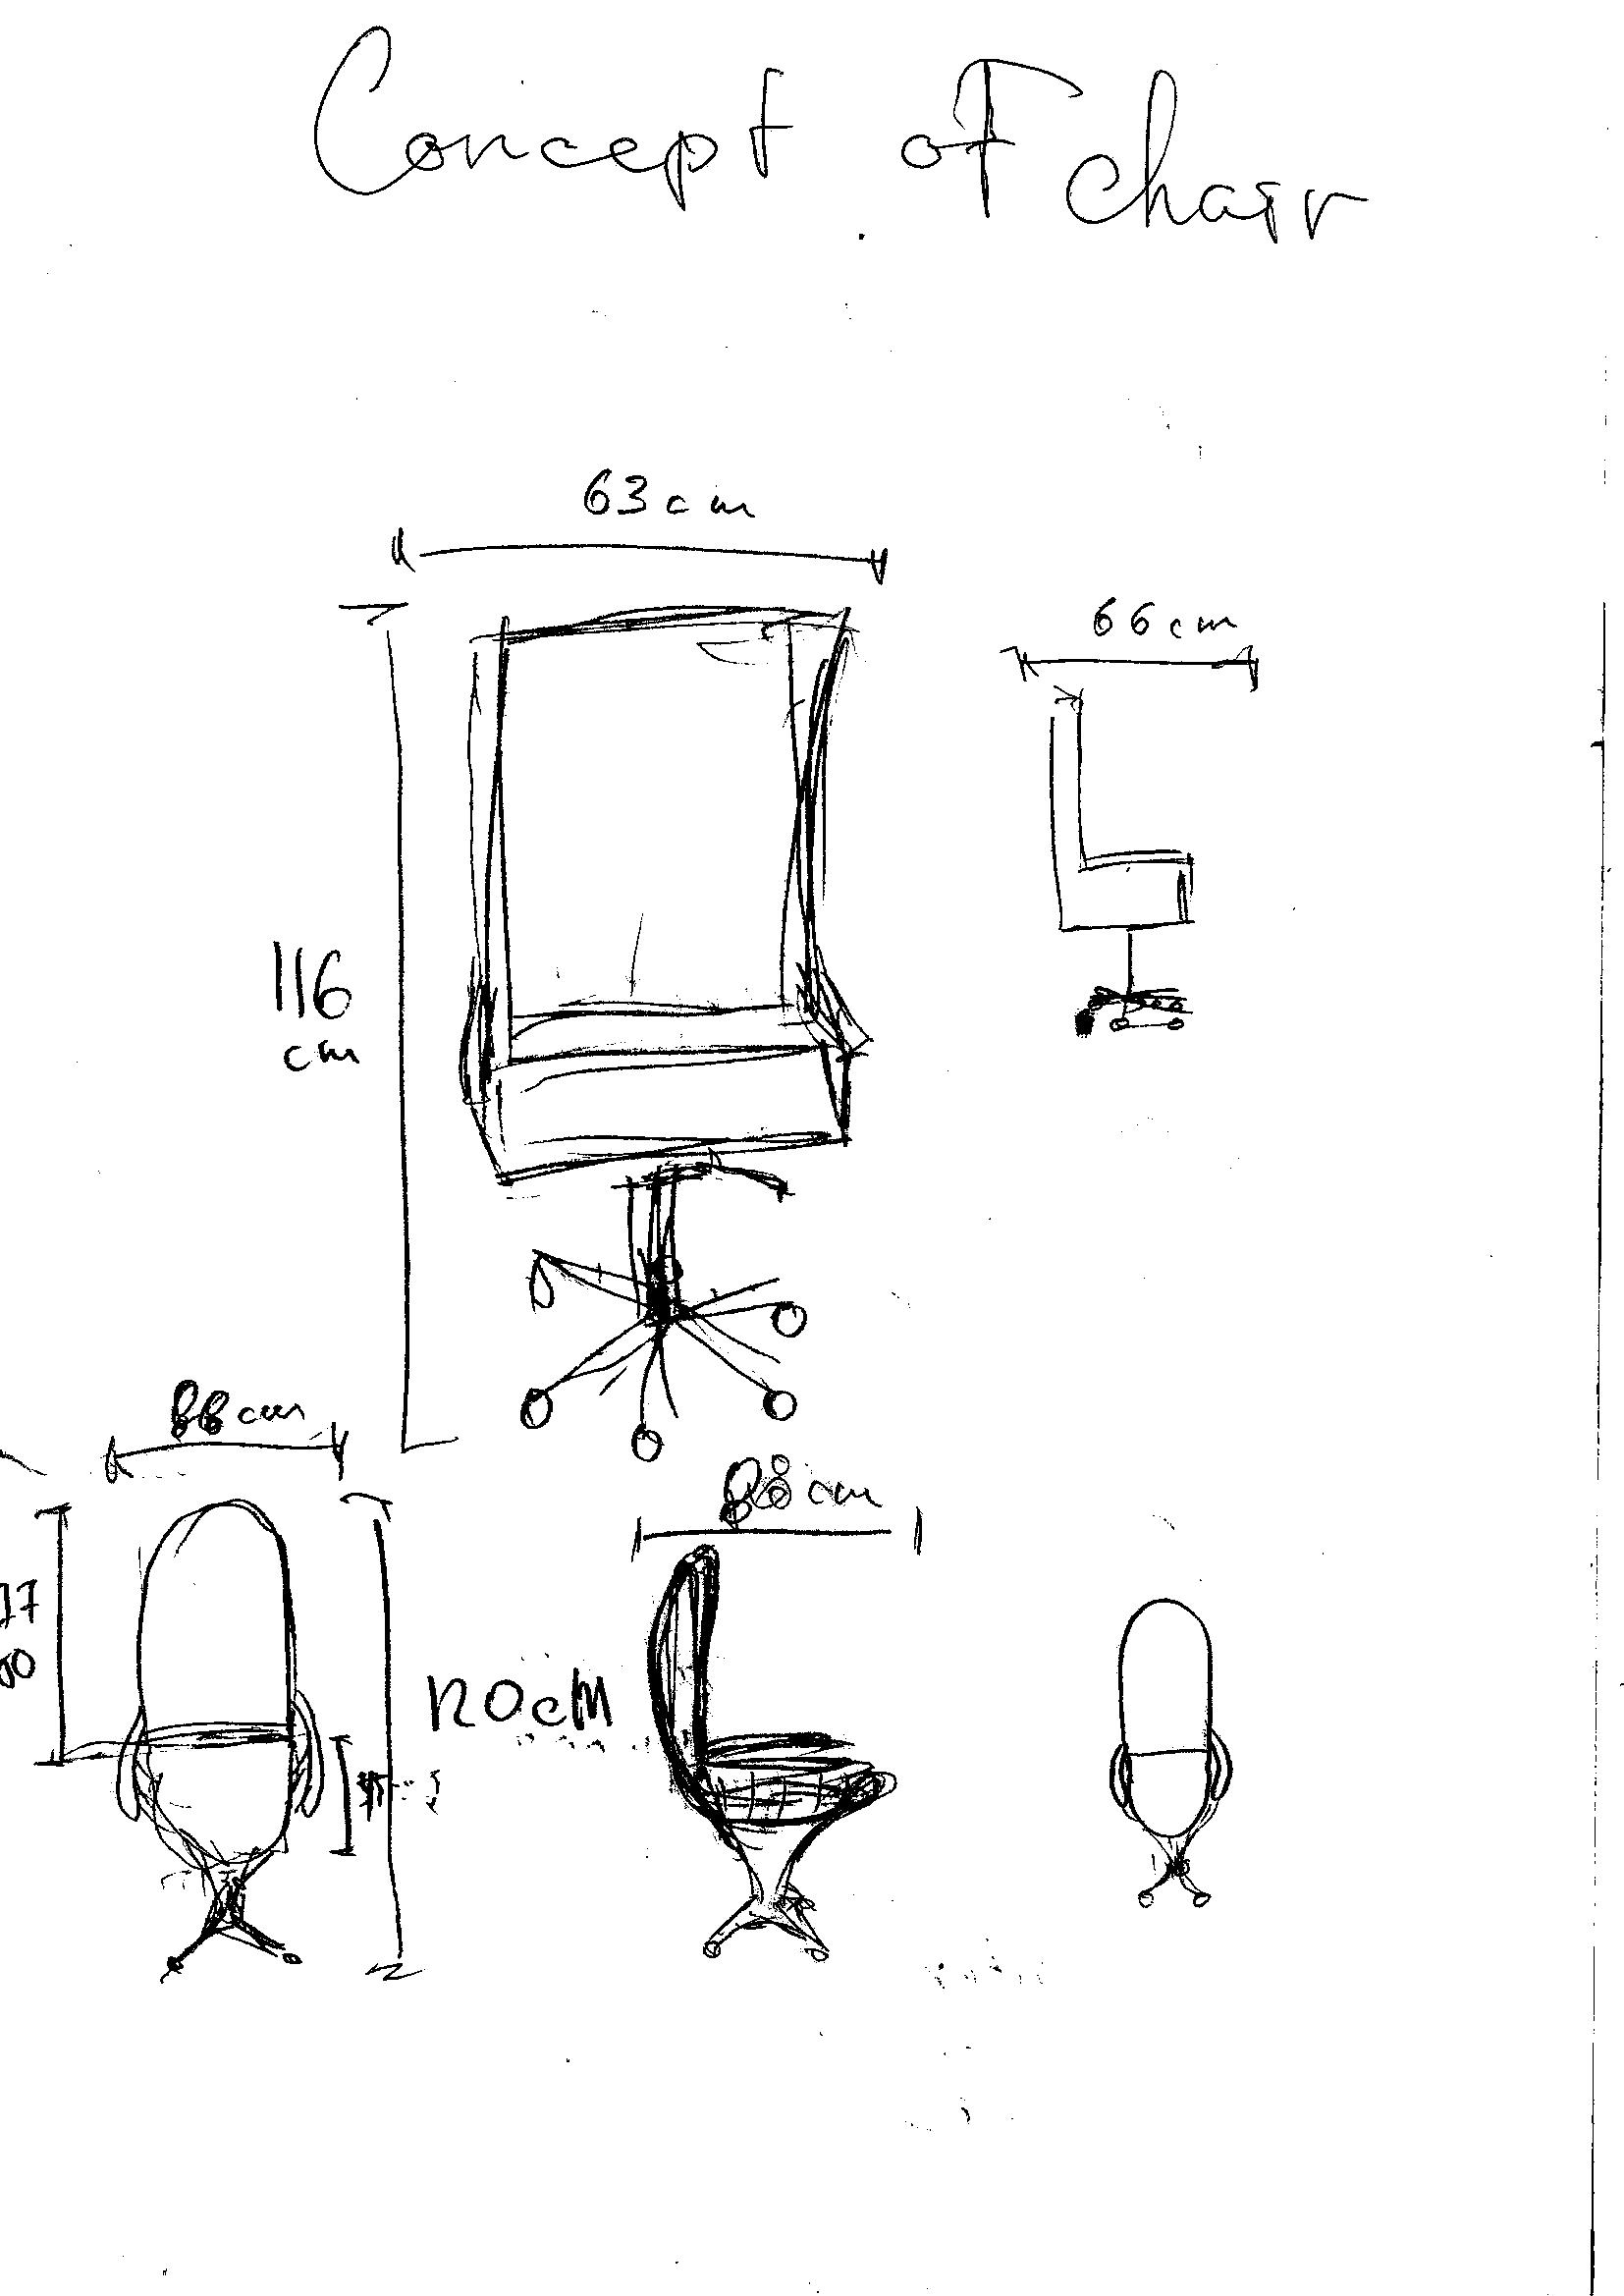 Concept of chair
63 cm
66 cm
116
cm
88 cm
120 cm